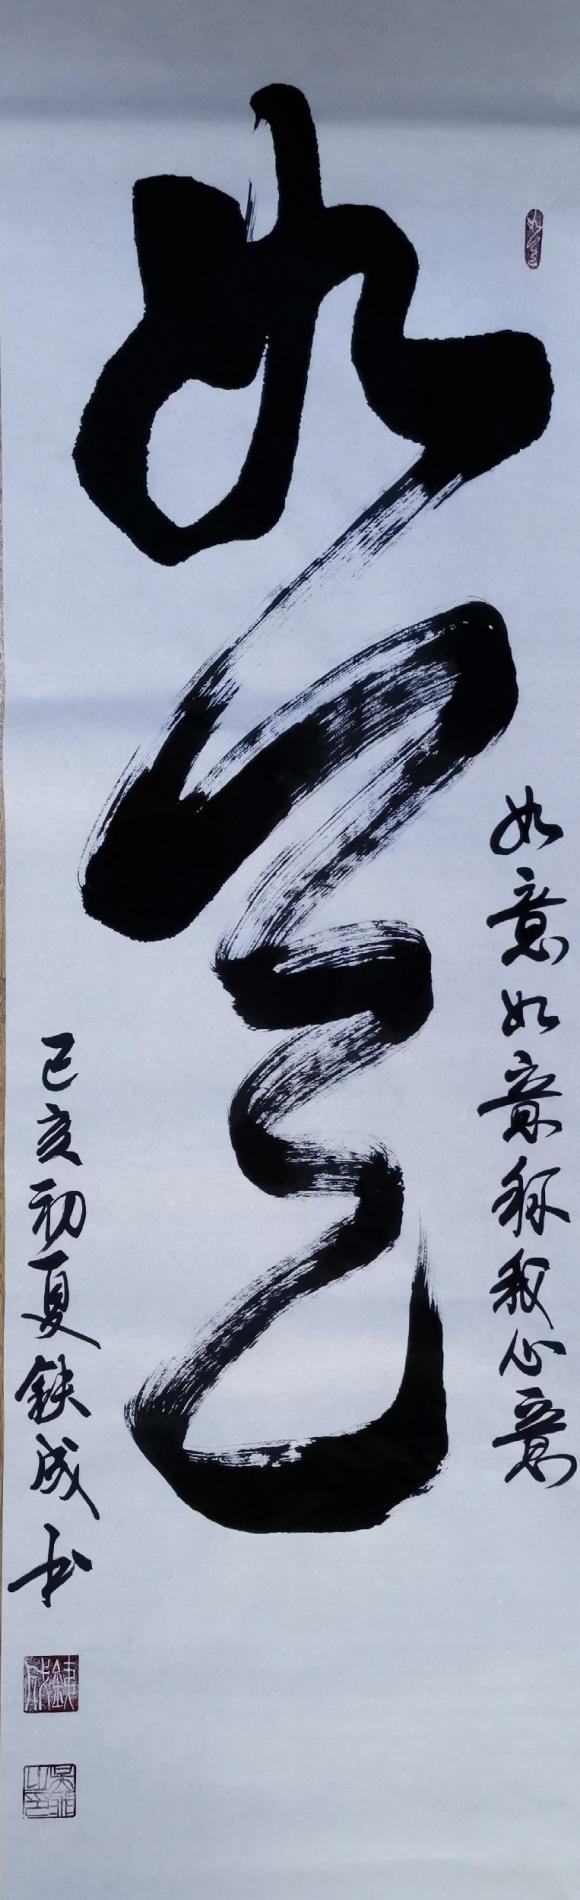 如意
如意如意称我心意
己亥初夏鉄成书